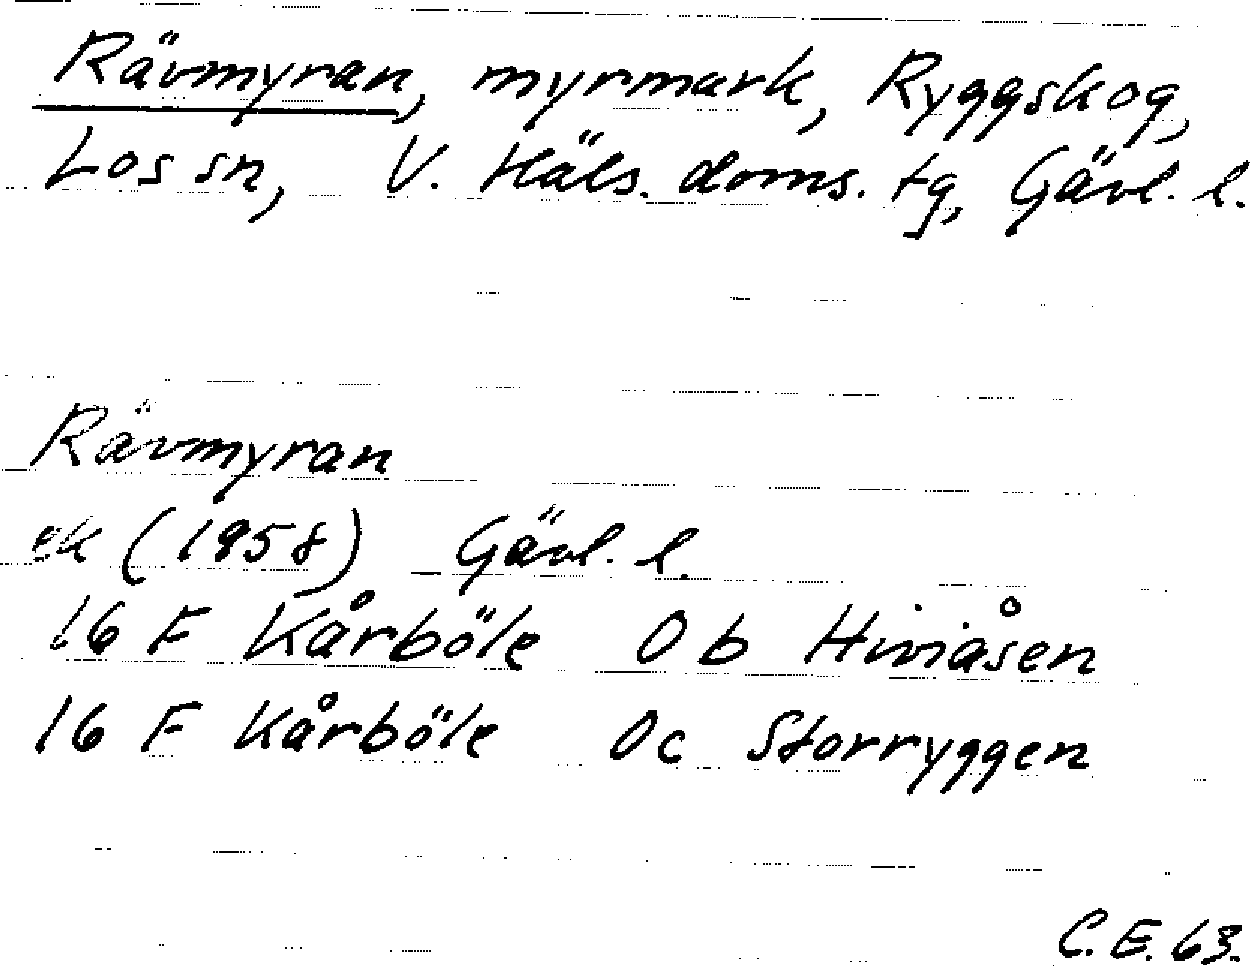 Rävmyran, myrmark, Ryggskog,
Los sn, V. Häls. doms. tg, Gävl. l.
Rävmyran
ek (1958) Gävl. l.
16 F Kårböle 0b Hiviåsen
16 F Kårböle 0c Storryggen
C.E. 63.